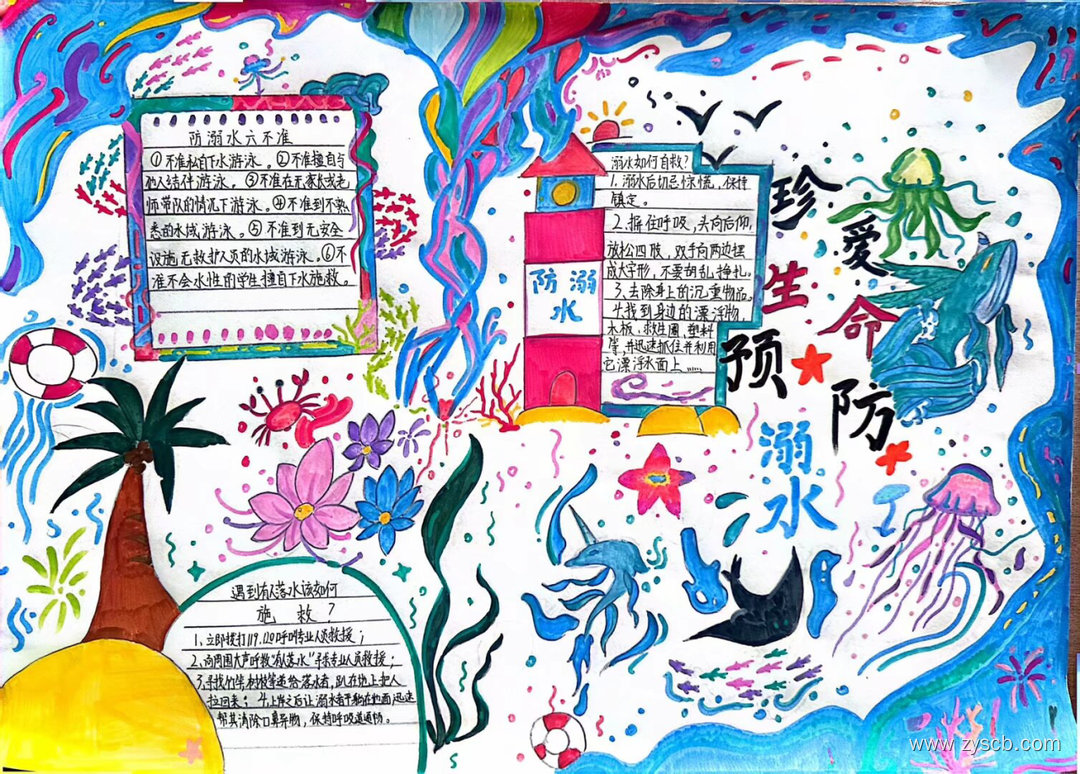 防溺水六不准
①不准私自下水游泳。②不准擅自与
他人结伴游泳。③不准在无家长或老
师带队的情况下游泳。④不准到不熟
悉的水域游泳。⑤不准到无安全
设施,无救护人员的水域游泳。⑥不
准不会水性的学生擅自下水施救。
防溺
水
溺水如何自救?
1.溺水后切忌惊慌,保持
镇定。
2.摒住呼吸,头向后仰,
放松四肢,双手向两边摆
成大字形,不要胡乱挣扎。
3.去除身上的沉重物品。
4.找到身边的漂浮物,
木板、救生圈,塑料
等,并迅速抓住并利用
它漂浮水面上……
珍爱
生命
预防
溺水
遇到有人落水该如何
施救?
1、立即拨打119.120呼叫专业人员救援;
2、向周围大声呼救"有人落水"寻求专业人员救援;
3.寻找竹竿树枝等递给落水者,趴在地上把人
拉回来;4.上岸之后让溺水者平躺在地面迅速
帮其清除口鼻异物,保持呼吸道通畅。
www.zyscb.com